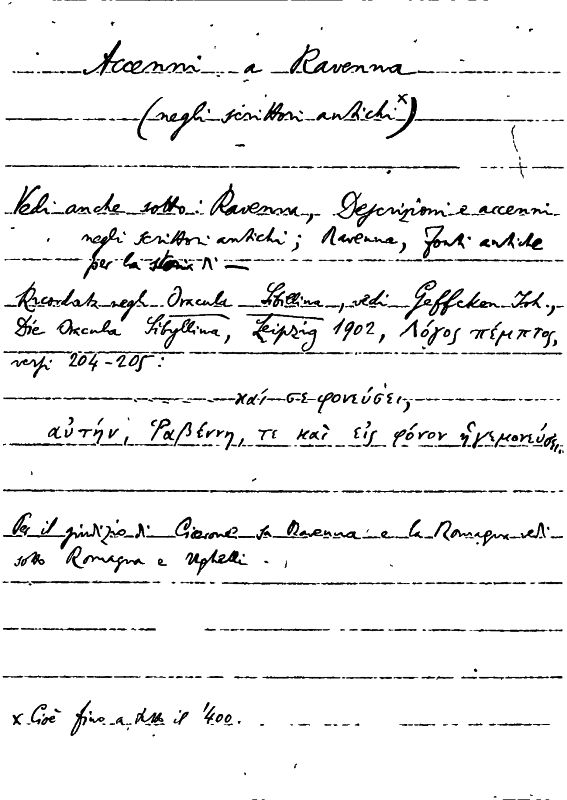 Accenni a Ravenna
(negli scrittori antichi x)
Vedi anche sotto: Ravenna, Descrizioni e accenni
negli scrittori antichi; Ravenna, fonti antiche
per la storia di —
Ricordata negli Oracula Sibillina, vedi Geffcken Joh.,
Die Oracula Sibyllina, Leipzig 1902, Λόγος πέμπτος,
versi 204-205:
καί σε φονεύσει,
αὐτήν, Ῥαβέννη, τε καὶ εἰς φόνον ἡγεμονεύσει.
Per il giudizio di Cicerone su Ravenna e la Romagna vedi
sotto Romagna e Ughelli.
x Cioè fino a tutto il '400.